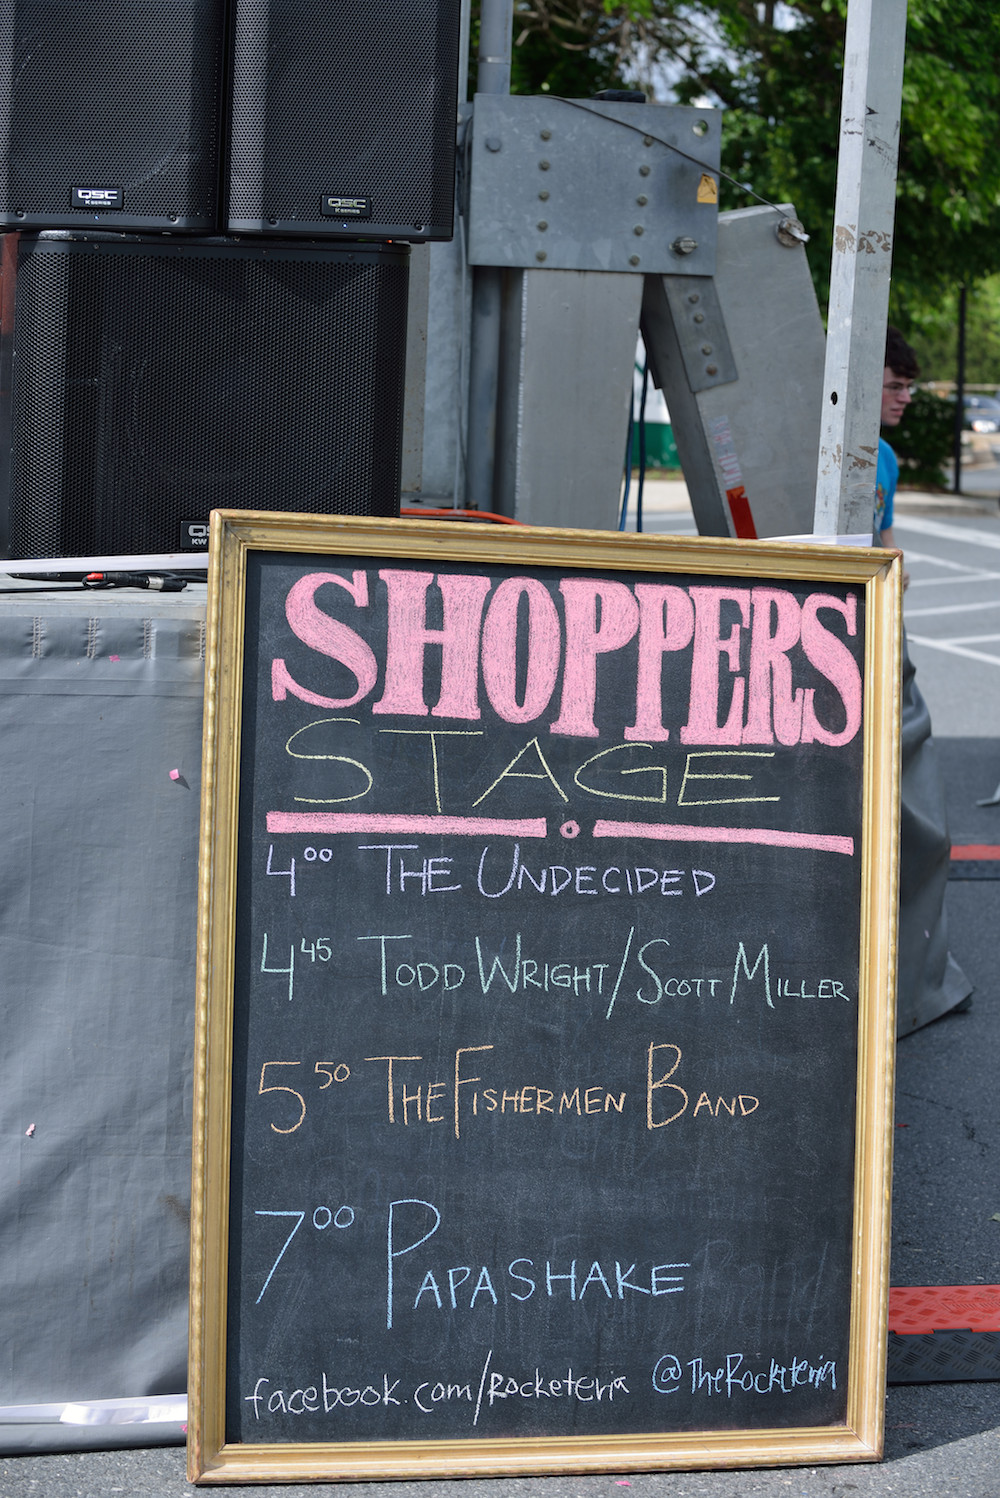 QSC
K SERIES
QSC
K SERIES
SHOPPERS
STAGE
4⁰⁰ THE UNDECIDED
4⁴⁵ TODD WRIGHT/SCOTT MILLER
5⁵⁰ THE FISHERMEN BAND
7⁰⁰ PAPASHAKE
facebook.com/Rocketeria @TheRocketeria